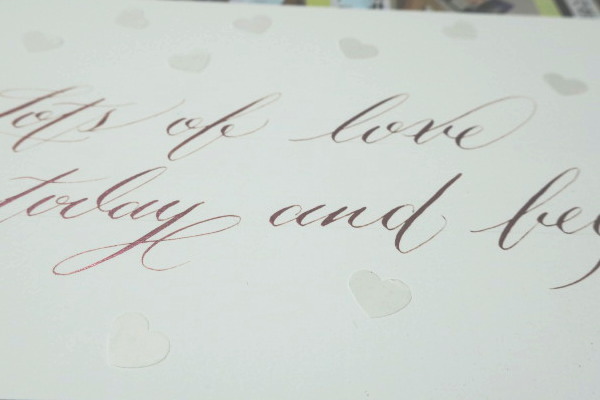 lots of love
today and